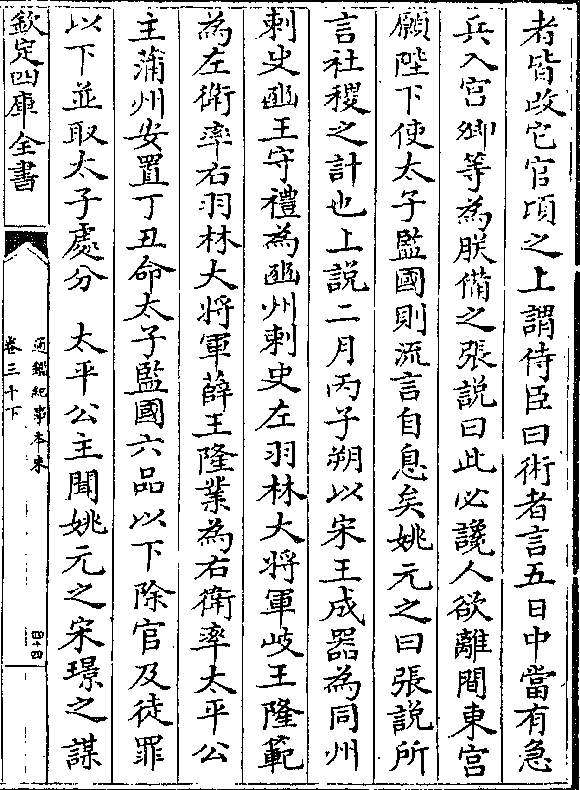 者皆改它官頃之上謂侍臣曰術者言五日中當有急
兵入宫卿等為朕備之張說曰此必讒人欲離間東宫
願陛下使太子監國則流言自息矣姚元之曰張說所
言社稷之計也上說二月丙子朔以宋王成器為同州
刺史豳王守禮為豳州刺史左羽林大將軍岐王隆範
為左衛率右羽林大將軍薛王隆業為右衛率太平公
主蒲州安置丁丑命太子監國六品以下除官及徒罪
以下並取太子處分　太平公主聞姚元之宋璟之謀
欽定四庫全書
通鑑紀事本末
卷三十下
四十四